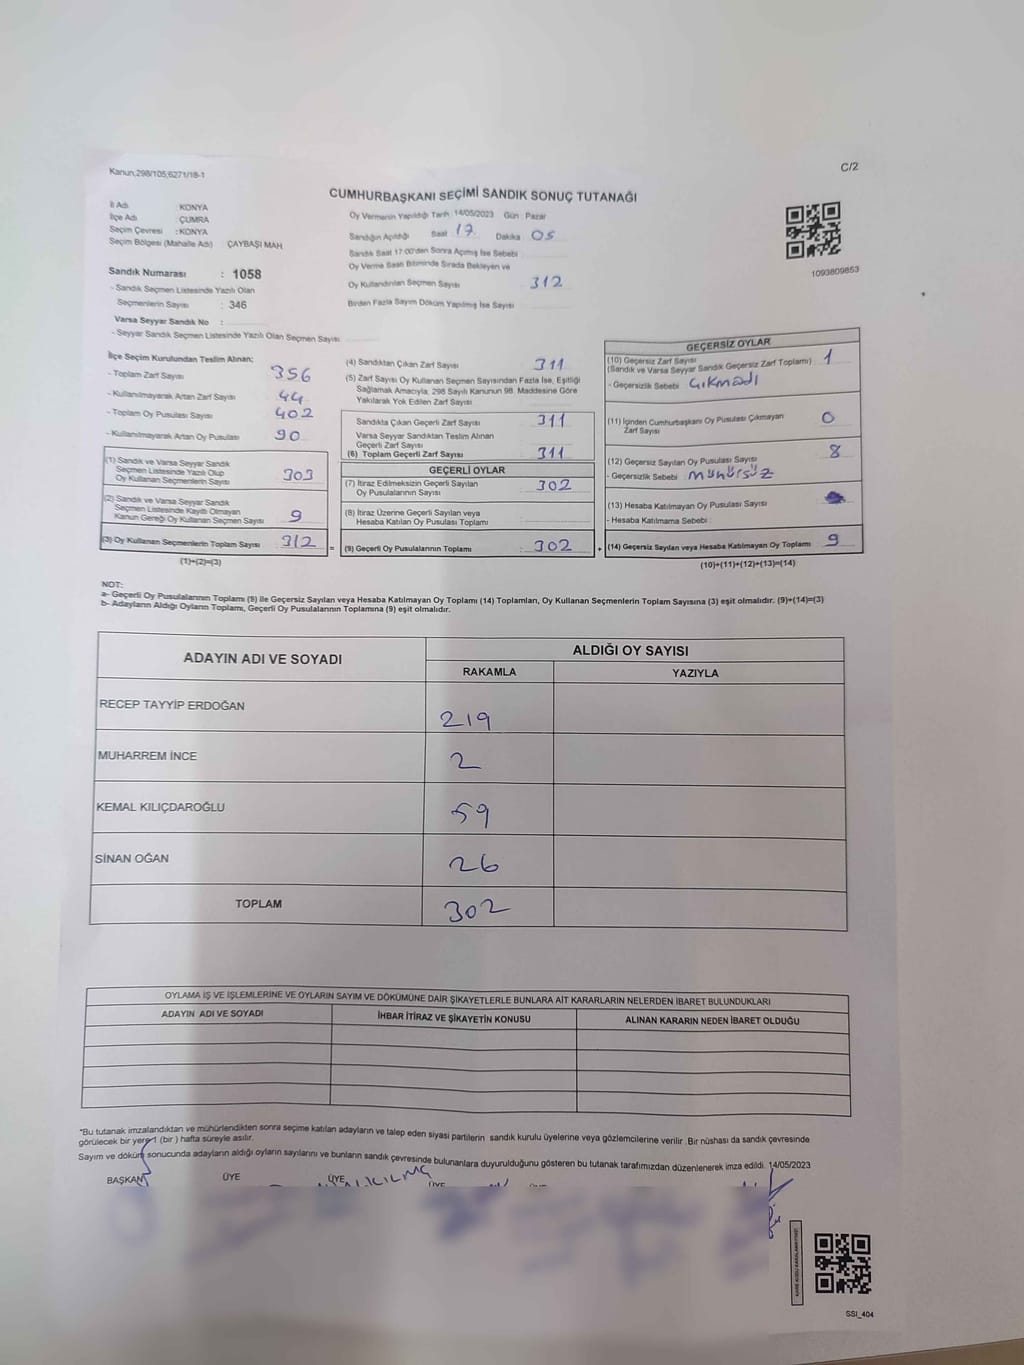 Kanun,298/105;6271/18-1
C/2
CUMHURBAŞKANI SEÇİMİ SANDIK SONUÇ TUTANAĞI
İl Adı : KONYA
İlçe Adı : ÇUMRA
Seçim Çevresi : KONYA
Seçim Bölgesi (Mahalle Adı) ÇAYBAŞI MAH
Sandık Numarası : 1058
- Sandık Seçmen Listesinde Yazılı Olan
Seçmenlerin Sayısı : 346
Varsa Seyyar Sandık No :
- Seyyar Sandık Seçmen Listesinde Yazılı Olan Seçmen Sayısı
Oy Vermenin Yapıldığı Tarih 14/05/2023 Gün : Pazar
Sandığın Açıldığı Saat 17 Dakika 05
Sandık Saat 17:00'den Sonra Açımış İse Sebebi
Oy Verme Saati Bitiminde Sırada Bekleyen ve
Oy Kullandırılan Seçmen Sayısı 312
Birden Fazla Sayım Döküm Yapılmış İse Sayısı
1093809853
İlçe Seçim Kurulundan Teslim Alınan;
- Toplam Zarf Sayısı 356
- Kullanılmayarak Artan Zarf Sayısı 44
- Toplam Oy Pusulası Sayısı 402
- Kullanılmayarak Artan Oy Pusulası 90
(1) Sandık ve Varsa Seyyar Sandık
Seçmen Listesinde Yazılı Olup
Oy Kullanan Seçmenlerin Sayısı 303
(2) Sandık ve Varsa Seyyar Sandık
Seçmen Listesinde Kayıtlı Olmayan
Kanun Gereği Oy Kullanan Seçmen Sayısı 9
(3) Oy Kullanan Seçmenlerin Toplam Sayısı 312
(1)+(2)=(3)
(4) Sandıktan Çıkan Zarf Sayısı 311
(5) Zarf Sayısı Oy Kullanan Seçmen Sayısından Fazla İse, Eşitliği
Sağlamak Amacıyla, 298 Sayılı Kanunun 98. Maddesine Göre
Yakılarak Yok Edilen Zarf Sayısı
Sandıkta Çıkan Geçerli Zarf Sayısı 311
Varsa Seyyar Sandıktan Teslim Alınan
Geçerli Zarf Sayısı
(6) Toplam Geçerli Zarf Sayısı 311
GEÇERLİ OYLAR
(7) İtiraz Edilmeksizin Geçerli Sayılan
Oy Pusulalarının Sayısı 302
(8) İtiraz Üzerine Geçerli Sayılan veya
Hesaba Katılan Oy Pusulası Toplamı
= (9) Geçerli Oy Pusulalarının Toplamı : 302 +
GEÇERSİZ OYLAR
(10) Geçersiz Zarf Sayısı
(Sandık ve Varsa Seyyar Sandık Geçersiz Zarf Toplamı) 1
- Geçersizlik Sebebi Çıkmadı
(11) İçinden Cumhurbaşkanı Oy Pusulası Çıkmayan
Zarf Sayısı 0
(12) Geçersiz Sayılan Oy Pusulası Sayısı 8
- Geçersizlik Sebebi mühürsüz
(13) Hesaba Katılmayan Oy Pusulası Sayısı
- Hesaba Katılmama Sebebi :
(14) Geçersiz Sayılan veya Hesaba Katılmayan Oy Toplamı 9
(10)+(11)+(12)+(13)=(14)
NOT:
a- Geçerli Oy Pusulalarının Toplamı (9) ile Geçersiz Sayılan veya Hesaba Katılmayan Oy Toplamı (14) Toplamları, Oy Kullanan Seçmenlerin Toplam Sayısına (3) eşit olmalıdır. (9)+(14)=(3)
b- Adayların Aldığı Oyların Toplamı, Geçerli Oy Pusulalarının Toplamına (9) eşit olmalıdır.
ADAYIN ADI VE SOYADI
ALDIĞI OY SAYISI
RAKAMLA YAZIYLA
RECEP TAYYİP ERDOĞAN 219
MUHARREM İNCE 2
KEMAL KILIÇDAROĞLU 59
SİNAN OĞAN 26
TOPLAM 302
OYLAMA İŞ VE İŞLEMLERİNE VE OYLARIN SAYIM VE DÖKÜMÜNE DAİR ŞİKAYETLERLE BUNLARA AİT KARARLARIN NELERDEN İBARET BULUNDUKLARI
ADAYIN ADI VE SOYADI İHBAR İTİRAZ VE ŞİKAYETİN KONUSU ALINAN KARARIN NEDEN İBARET OLDUĞU
*Bu tutanak imzalandıktan ve mühürlendikten sonra seçime katılan adayların ve talep eden siyasi partilerin sandık kurulu üyelerine veya gözlemcilerine verilir. Bir nüshası da sandık çevresinde
görülecek bir yere 1 (bir ) hafta süreyle asılır.
Sayım ve döküm sonucunda adayların aldığı oyların sayılarını ve bunların sandık çevresinde bulunanlara duyurulduğunu gösteren bu tutanak tarafımızdan düzenlenerek imza edildi. 14/05/2023
BAŞKAN ÜYE ÜYE ÜYE
SSI_404